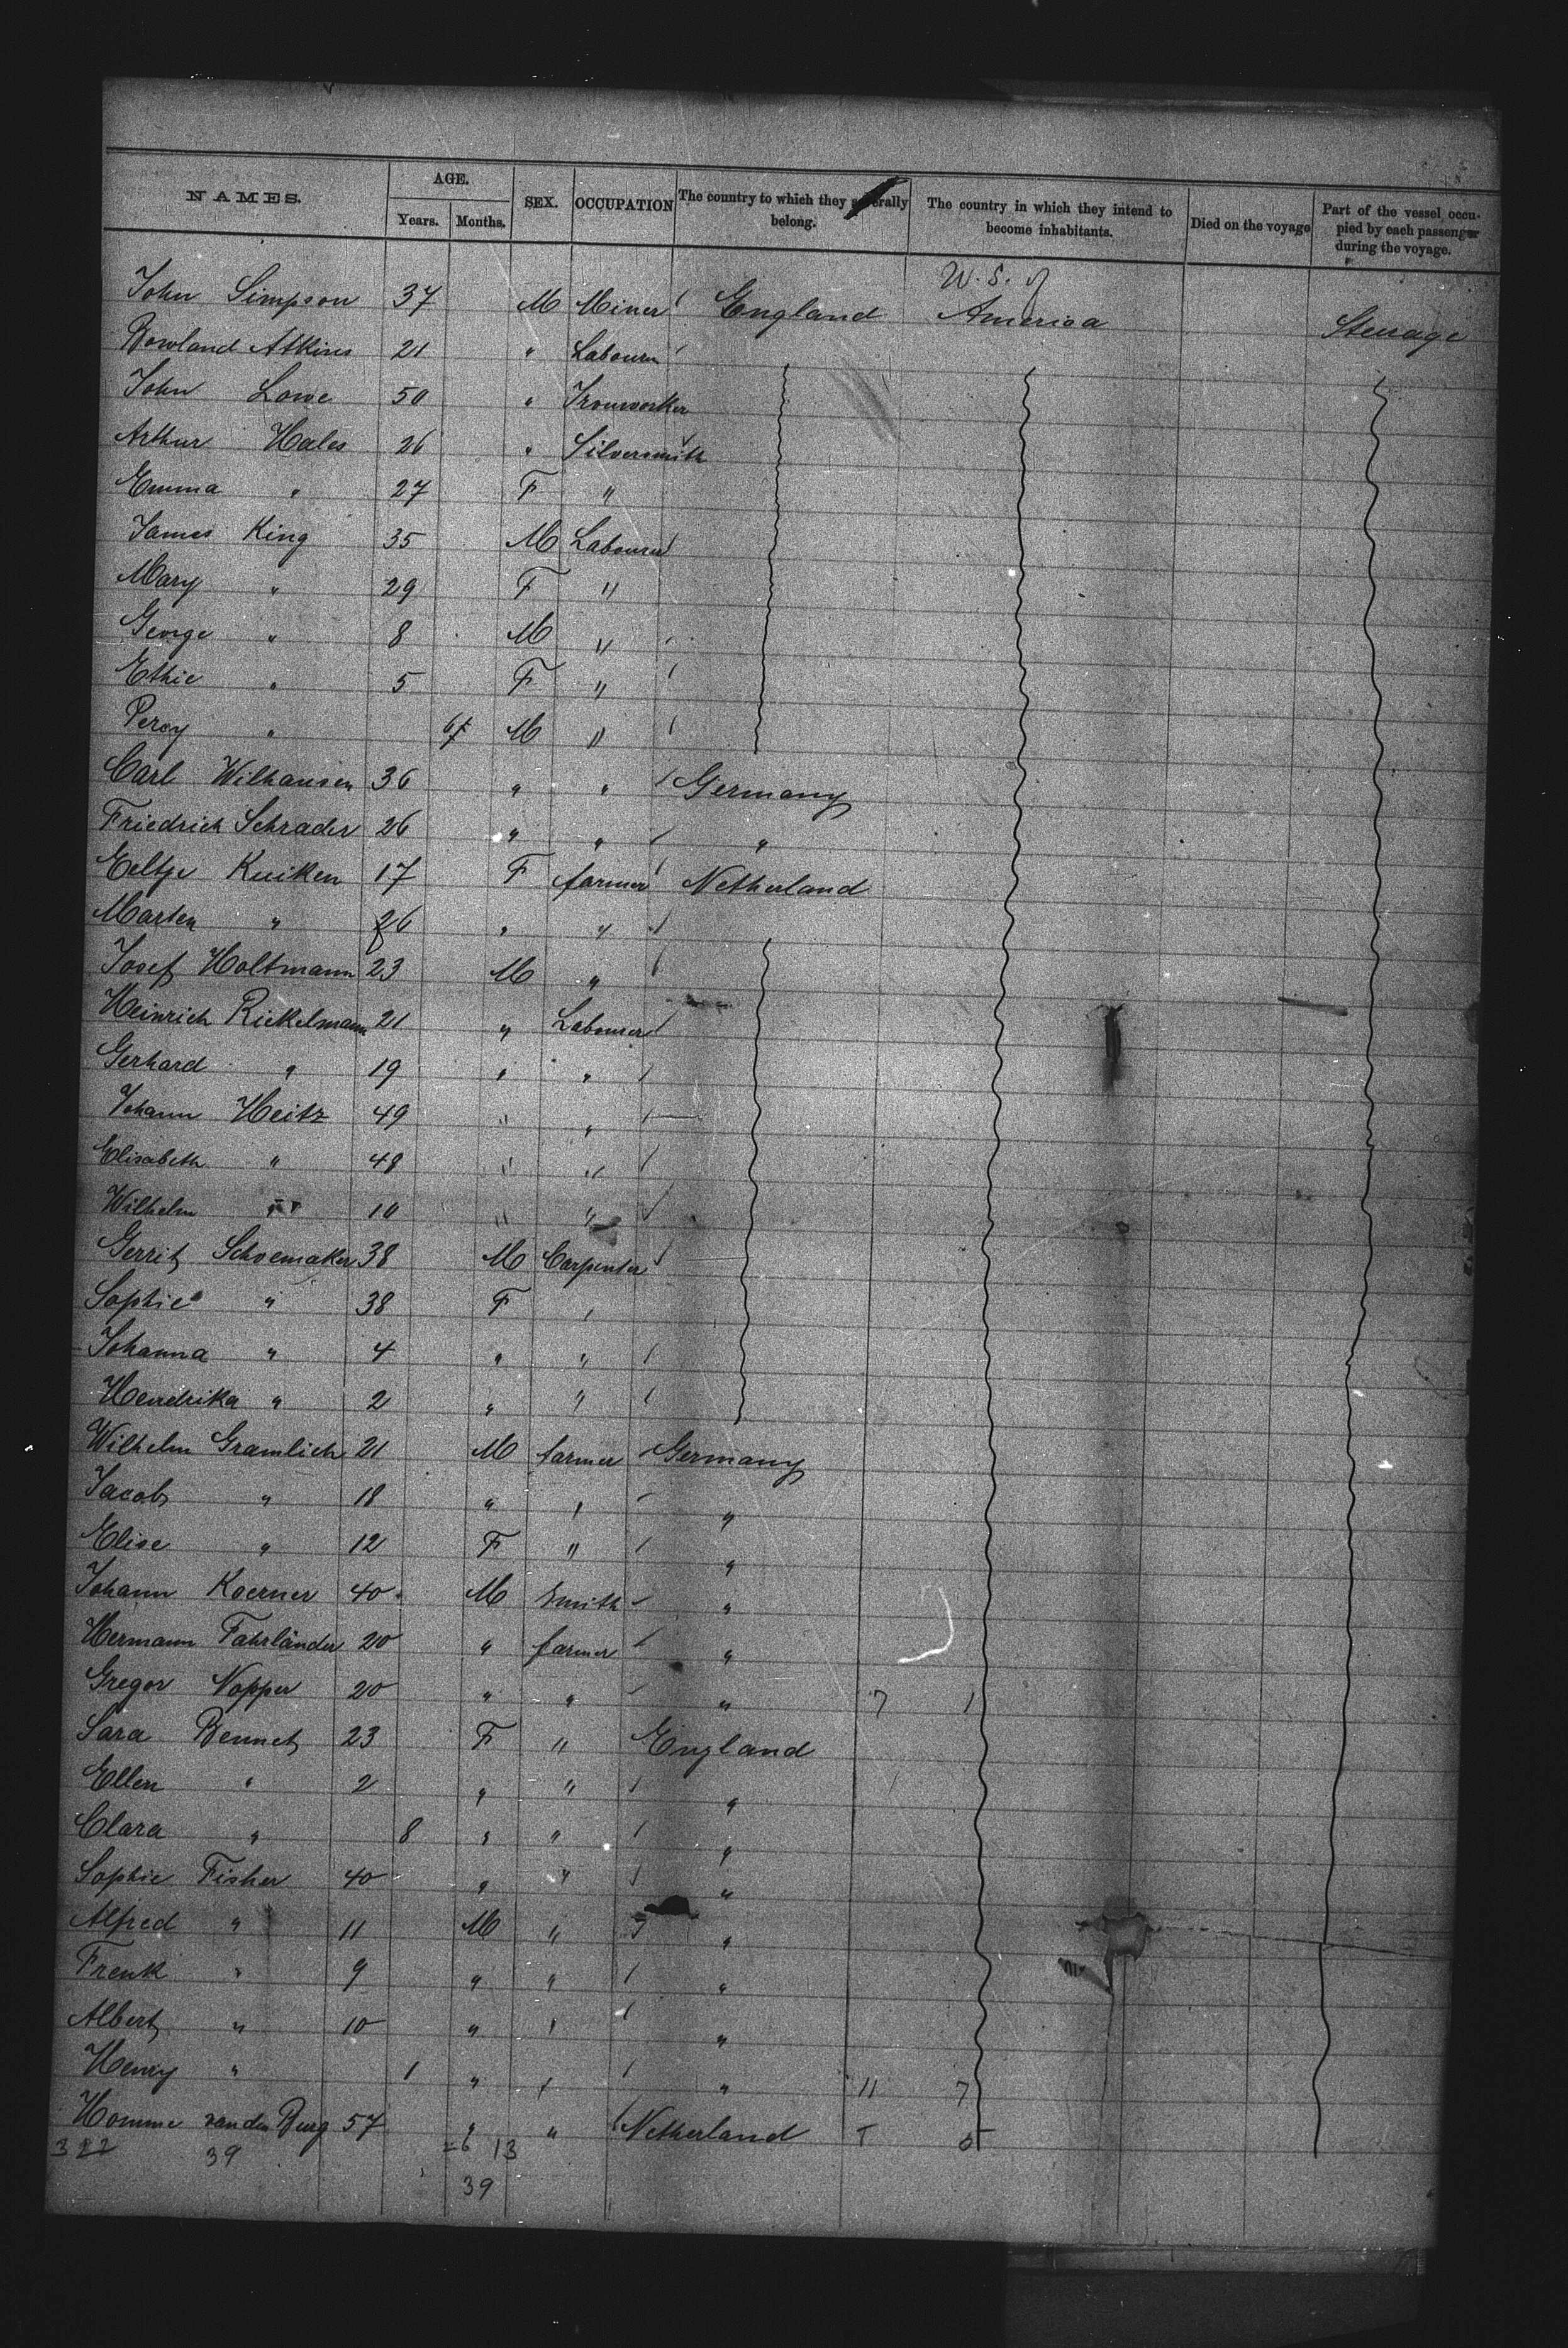 NAMES. AGE. SEX. OCCUPATION The country to which they generally belong. The country in which they intend to become inhabitants. Died on the voyage Part of the vessel occupied by each passenger during the voyage.
Years. Months.
U. S. of
John Simpson 37 M Miner England America Steerage
Rowland Atkins 21 " Labourer
John Lowe 50 " Ironworker
Arthur Hales 26 " Silversmith
Emma " 27 F "
James King 35 M Labourer
Mary " 29 F "
George " 8 M "
Ethie " 5 F "
Percy " M "
Carl Wilhausen 36 " " Germany
Friedrich Schrader 26 " " "
Eeltje Kuiken 17 F farmer Netherland
Marten " 26 " "
Josef Holtmann 23 M "
Heinrich Rickelmann 21 " Labourer
Gerhard " 19 " "
Johann Heitz 49 " "
Elisabeth " 48 " "
Wilhelm " 10 " "
Gerrit Schoemaker 38 M Carpenter
Sophie " 38 F "
Johanna " 4 " "
Hendrika " 2 " "
Wilhelm Gramlich 21 M farmer Germany
Jacob " 18 " " "
Elise " 12 F " "
Johann Koerner 40 M Smith "
Hermann Fahrländer 20 " farmer "
Gregor Nopper 20 " " " 7 1
Sara Bennet 23 F " England
Ellen " 2 " " "
Clara " 8 " " "
Sophie Fisher 40 " " "
Alfred " 11 M " "
Frenk " 9 " " "
Albert " 10 " " "
Henry " 1 " " " 11 7
Homme van der Burg 57 " " Netherland
39 26 13
39